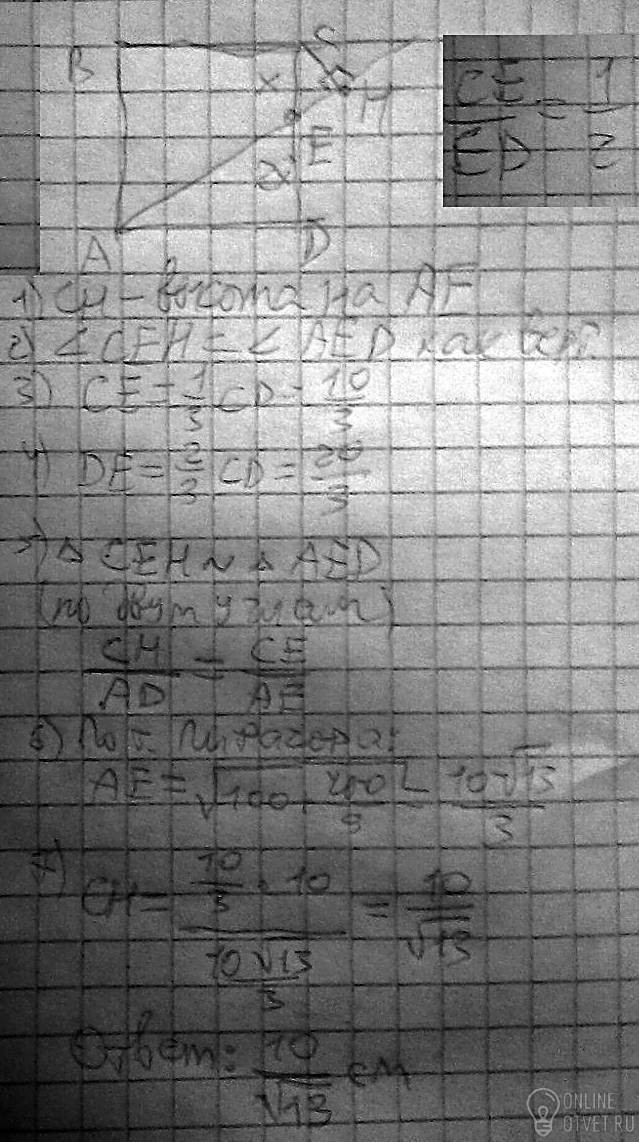 B C
x H
E
2x
A D
CE/ED = 1/2
1) CH - высота на AE
2) ∠CEH = ∠AED как верт.
3) CE = 1/3 CD = 10/3
4) DE = 2/3 CD = 20/3
5) △CEH ~ △AED
(по двум углам)
CH/AD = CE/AE
6) По т. Пифагора:
AE = √(100 + 400/9) = 10√13/3
7) CH = (10/3 · 10)/(10√13/3) = 10/√13
Ответ: 10/√13 см
ONLINE
OTVET.RU